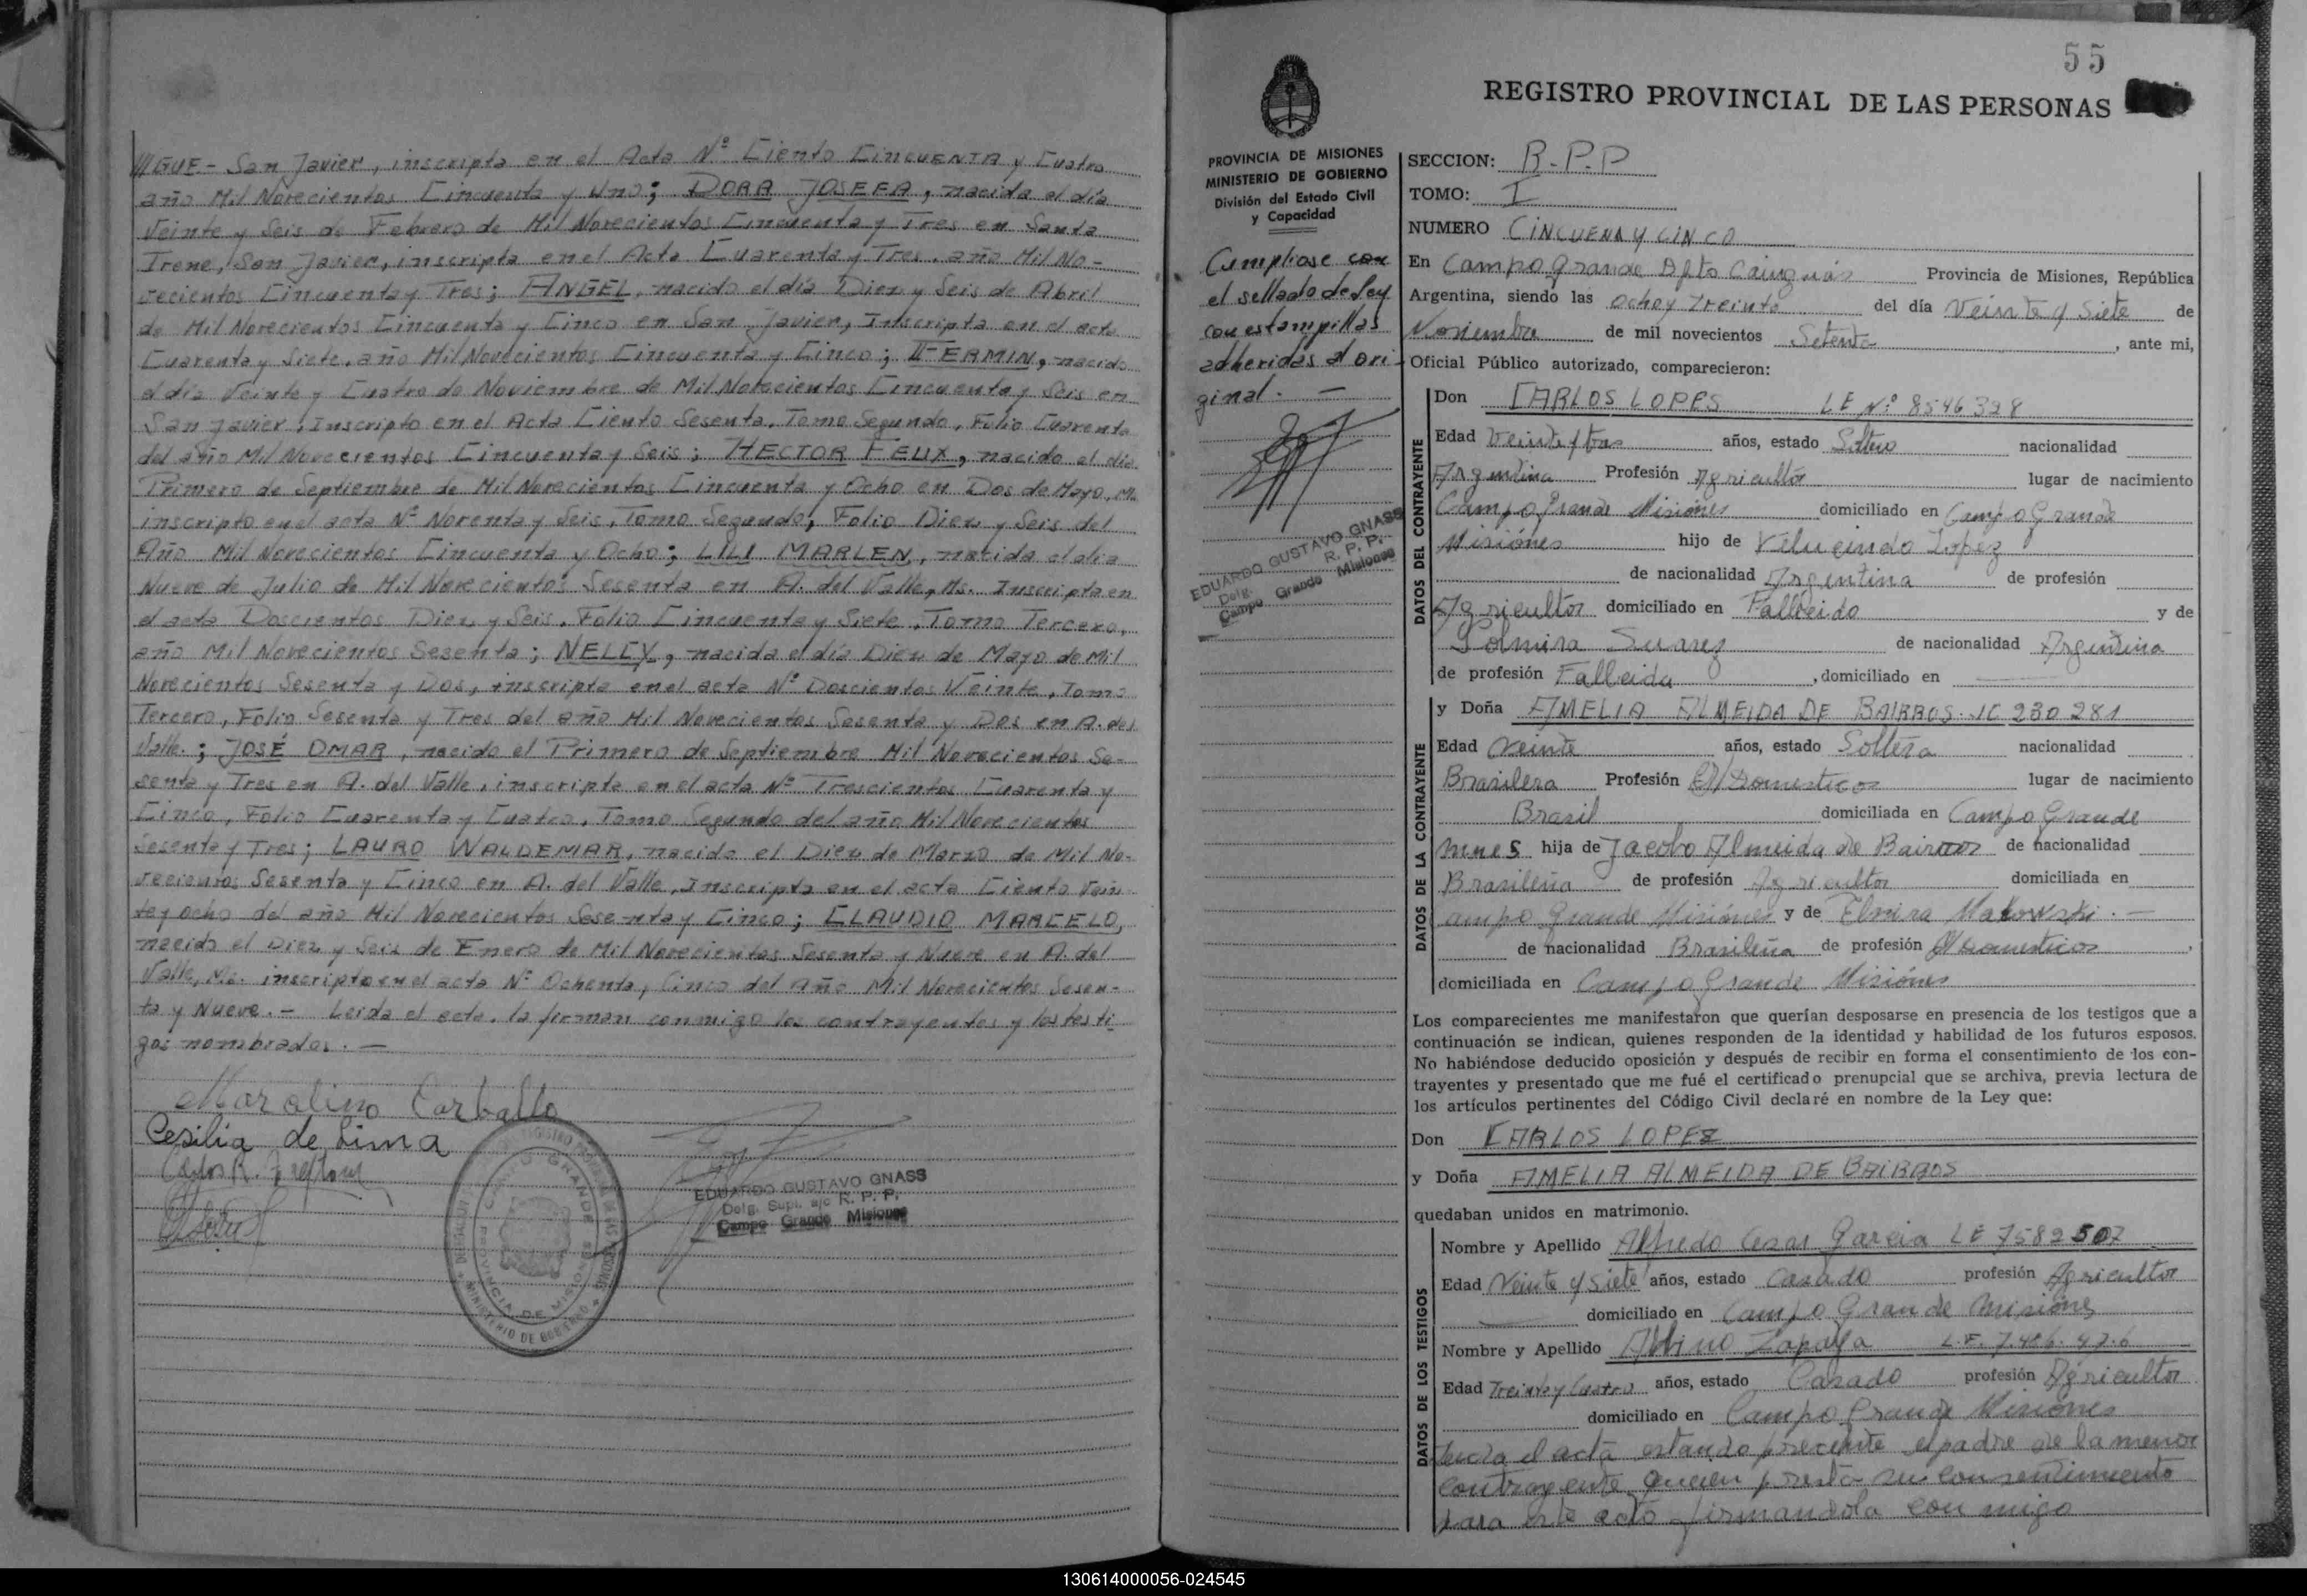 ///GUE.- San Javier, inscripta en el Acta Nº Ciento CINCUENTA y Cuatro
año Mil Novecientos Cincuenta y Uno; DORA JOSEFA, nacida el día
Veinte y Seis de Febrero de Mil Novecientos Cincuenta y Tres en Santa
Irene, San Javier, inscripta en el Acta Cuarenta y Tres, año Mil No-
vecientos Cincuenta y Tres; ANGEL, nacido el día Diez y Seis de Abril
de Mil Novecientos Cincuenta y Cinco en San Javier, Inscripta en el acta
Cuarenta y Siete, año Mil Novecientos Cincuenta y Cinco; FERMIN, nacido
el día Veinte y Cuatro de Noviembre de Mil Novecientos Cincuenta y Seis en
San Javier, Inscripto en el Acta Ciento Sesenta, Tomo Segundo, Folio Cuarenta
del año Mil Novecientos Cincuenta y Seis; HECTOR FELIX, nacido el día
Primero de Septiembre de Mil Novecientos Cincuenta y Ocho en Dos de Mayo, Ms.
inscripto en el acta Nº Noventa y Seis, Tomo Segundo, Folio Diez y Seis del
Año Mil Novecientos Cincuenta y Ocho; LILI MARLEN, nacida el día
Nueve de Julio de Mil Novecientos Sesenta en A. del Valle, Ms. Inscripta en
el acta Doscientos Diez y Seis, Folio Cincuenta y Siete, Tomo Tercero,
año Mil Novecientos Sesenta; NELCY, nacida el día Diez de Mayo de Mil
Novecientos Sesenta y Dos, inscripta en el acta Nº Doscientos Veinte, Tomo
Tercero, Folio Sesenta y Tres del año Mil Novecientos Sesenta y Dos en A. del
Valle.; JOSÉ OMAR, nacido el Primero de Septiembre Mil Novecientos Se-
senta y Tres en A. del Valle, inscripta en el acta Nº Trescientos Cuarenta y
Cinco, Folio Cuarenta y Cuatro, Tomo Segundo del año Mil Novecientos
Sesenta y Tres; LAURO WALDEMAR, nacido el Diez de Marzo de Mil No-
vecientos Sesenta y Cinco en A. del Valle, Inscripta en el acta Ciento Vein
te y ocho del año Mil Novecientos Sesenta y Cinco; CLAUDIO MARCELO,
nacido el Diez y Seis de Enero de Mil Novecientos Sesenta y Nueve en A. del
Valle, Ms. inscripto en el acta Nº Ochenta y Cinco del año Mil Novecientos Sesen-
ta y Nueve.- Leida el acta, la firman conmigo los contrayentes y los testi
gos nombrados.-
Marcelino Carballo
Cesilia de Lima
EDUARDO GUSTAVO GNASS
Delg. Supl. a/c R. P. P.
Campo Grande Misiones
55
REGISTRO PROVINCIAL DE LAS PERSONAS
PROVINCIA DE MISIONES
MINISTERIO DE GOBIERNO
División del Estado Civil
y Capacidad
Cumpliose con
el sellado de Ley
con estampillas
adheridas al ori-
ginal. -
EDUARDO GUSTAVO GNASS
Delg. R. P. P.
Campo Grande Misiones
SECCION: R.P.P
TOMO: I
NUMERO CINCUENA Y CINCO
En Campo Grande Dpto Cainguás Provincia de Misiones, República
Argentina, siendo las ocho y treinta del día Veinte y Siete de
Noviembre de mil novecientos Setenta, ante mi,
Oficial Público autorizado, comparecieron:
DATOS DEL CONTRAYENTE
Don CARLOS LOPES LE Nº 8546328
Edad Veinte y tres años, estado Soltero nacionalidad
Argentina Profesión Agricultor lugar de nacimiento
Campo Grande Misiones domiciliado en Campo Grande
Misiónes hijo de Vilucindo Lopez
de nacionalidad Argentina de profesión
Agricultor domiciliado en Falleido y de
Polmira Suarez de nacionalidad Argentina
de profesión Falleida, domiciliado en
DATOS DE LA CONTRAYENTE
y Doña AMELIA ALMEIDA DE BAIRROS. IC 230281
Edad Veinte años, estado Soltera nacionalidad
Brasilera Profesión Q/Domesticos lugar de nacimiento
Brasil domiciliada en Campo Grande
hija de Jacobo Almeida de Bairros de nacionalidad
Brasileña de profesión Agricultor domiciliada en
Campo Grande Misiónes y de Elmira Makowski.-
de nacionalidad Brasileña de profesión Q/Domesticos,
domiciliada en Campo Grande Misiónes
Los comparecientes me manifestaron que querían desposarse en presencia de los testigos que a
continuación se indican, quienes responden de la identidad y habilidad de los futuros esposos.
No habiéndose deducido oposición y después de recibir en forma el consentimiento de los con-
trayentes y presentado que me fué el certificado prenupcial que se archiva, previa lectura de
los artículos pertinentes del Código Civil declaré en nombre de la Ley que:
Don CARLOS LOPEZ
y Doña AMELIA ALMEIDA DE BAIRROS
quedaban unidos en matrimonio.
DATOS DE LOS TESTIGOS
Nombre y Apellido Alfredo Cesar Garcia LE 7582507
Edad Veinte y Siete años, estado Casado profesión Agricultor
domiciliado en Campo Grande Misiónes
Nombre y Apellido Albino Zapaya L.E. 7.486.476
Edad Treinta y Cuatro años, estado Casado profesión Agricultor
domiciliado en Campo Grande Misiones
Leida el acta estando precente el padre de la menor
contrayente quien presta su consentimiento
para este acto firmandola con migo
130614000056-024545